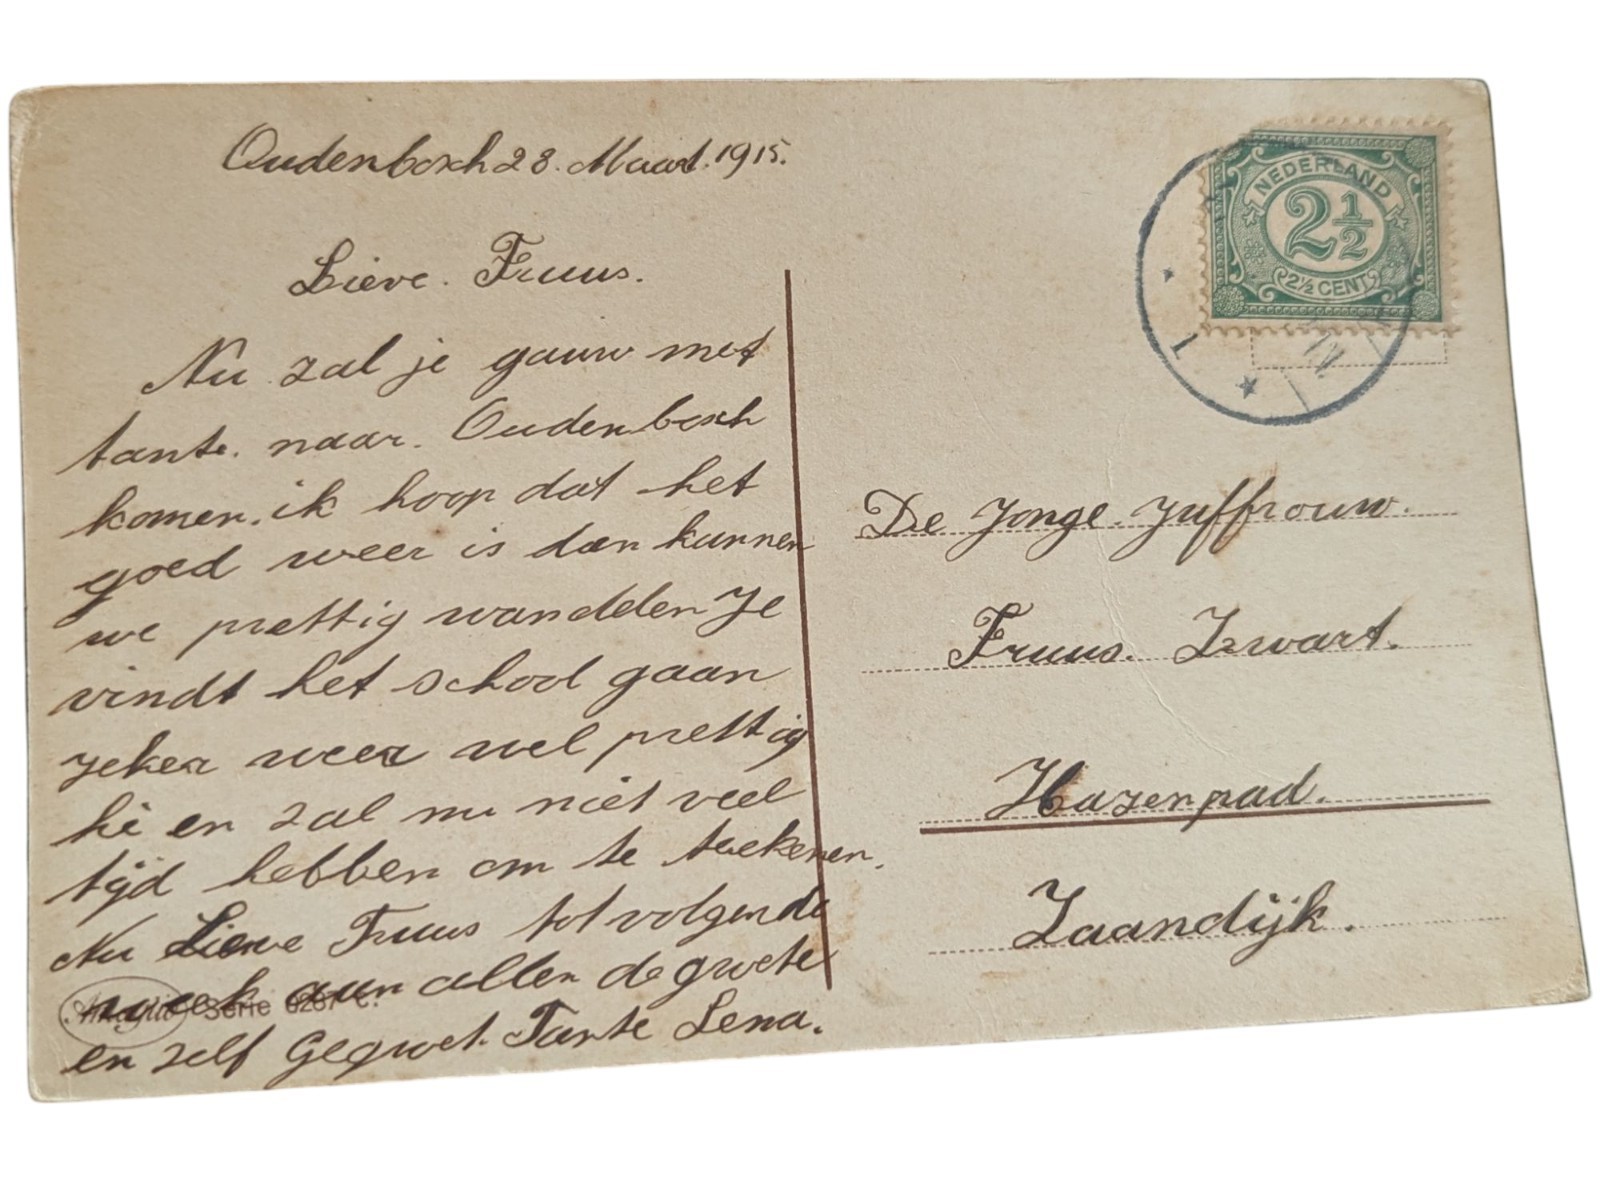 Oudenbosch 28. Maart. 1915.
Lieve. Truus.
Nu zal je gauw met
tante. naar. Oudenbosch
komen. ik hoop dat het
goed weer is dan kunnen
we prettig wandelen Je
vindt het school gaan
zeker weer wel prettig
hè en zal nu niet veel
tijd hebben om te teekenen.
Nu Lieve Truus tot volgende
week aan allen de groete
en zelf Gegroet. Tante Lena.
Serie
NEDERLAND
2½
2½ CENT
1
De Jonge Juffrouw.
Truus. Zwart.
Hazenpad.
Zaandijk.